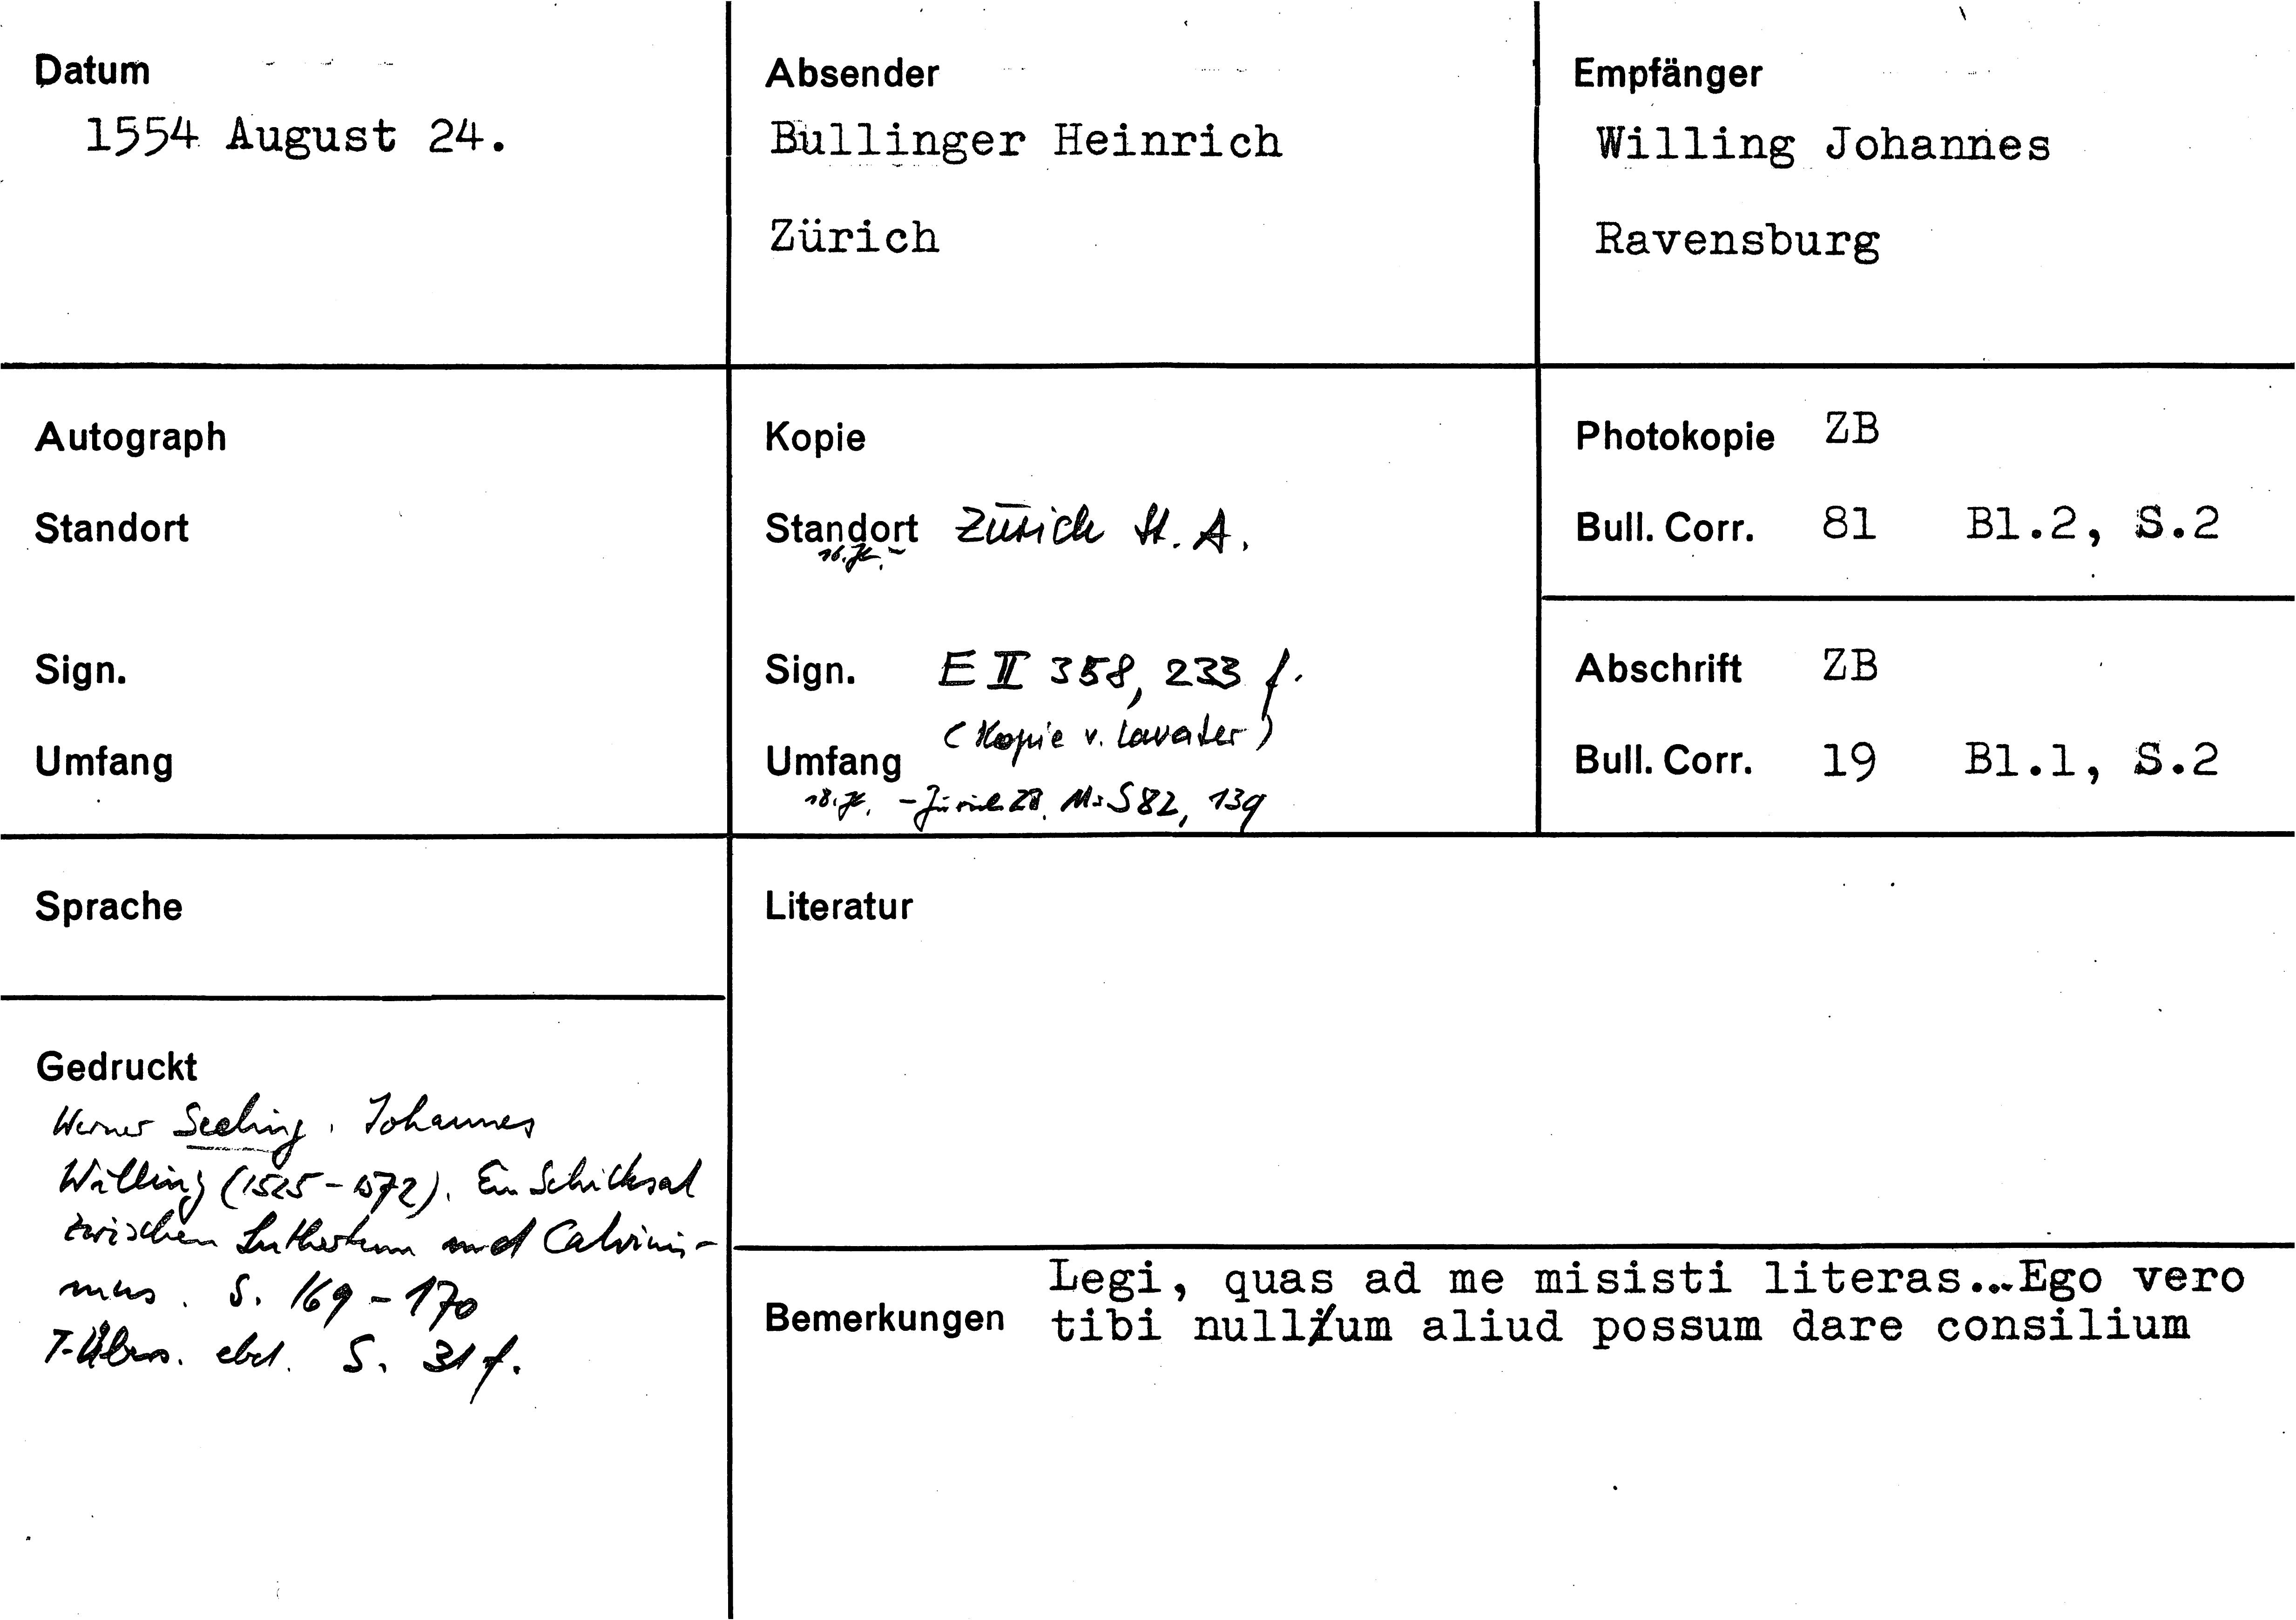 Datum
1554 August 24.
Absender
Bullinger Heinrich
Zürich
Empfänger
Willing Johannes
Ravensburg
Autograph
Standort
Sign.
Umfang
Kopie
Standort Zürich St. A.
16. Jh. -
Sign. E II 358, 233 f.
(Kopie v. Lavater)
Umfang
18. Jh. - Zürich ZB, Ms S 82, 139
Photokopie ZB
Bull. Corr. 81 Bl.2, S.2
Abschrift ZB
Bull. Corr. 19 Bl.1, S.2
Sprache
Gedruckt
Werner Seeling, Johannes
Willing (1525-1572). Ein Schicksal
zwischen Luthertum und Calvinis-
mus. S. 169-170
T-Übers. ebd. S. 31 f.
Literatur
Bemerkungen
Legi, quas ad me misisti literas...Ego vero
tibi nullum aliud possum dare consilium